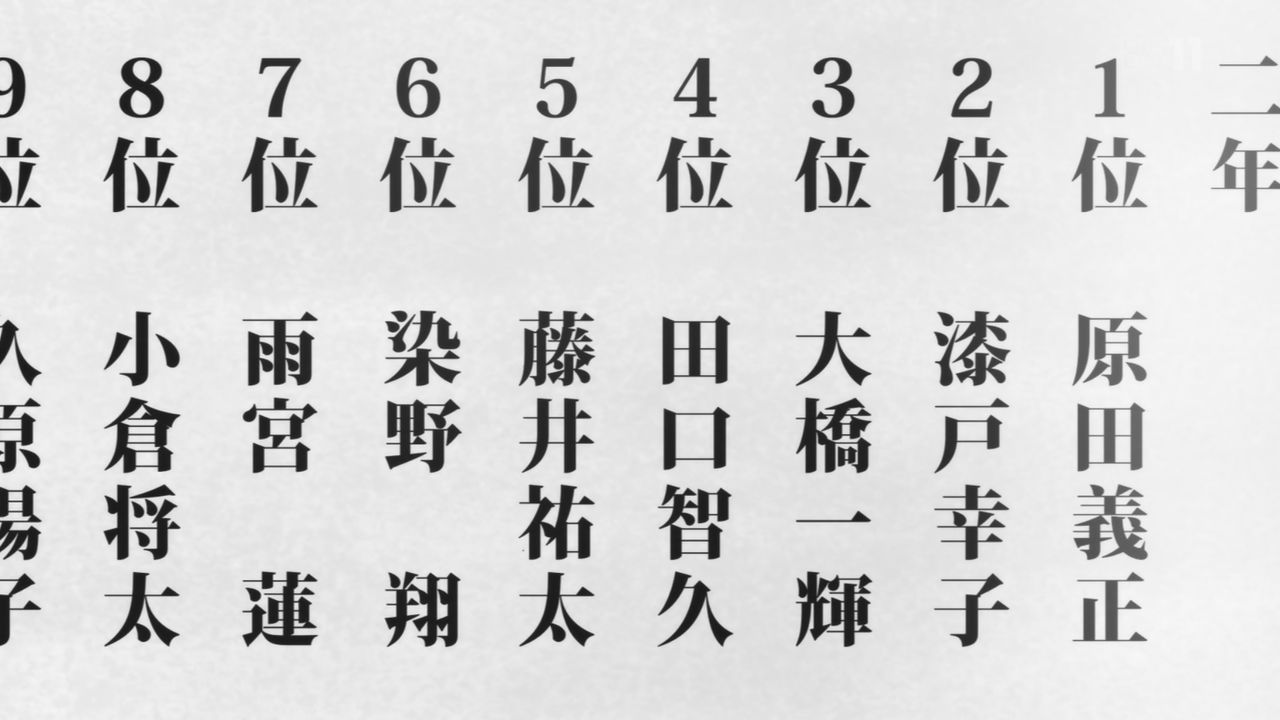 二年
1位 原田義正
2位 漆戸幸子
3位 大橋一輝
4位 田口智久
5位 藤井祐太
6位 染野 翔
7位 雨宮 蓮
8位 小倉将太
9位 久原陽子